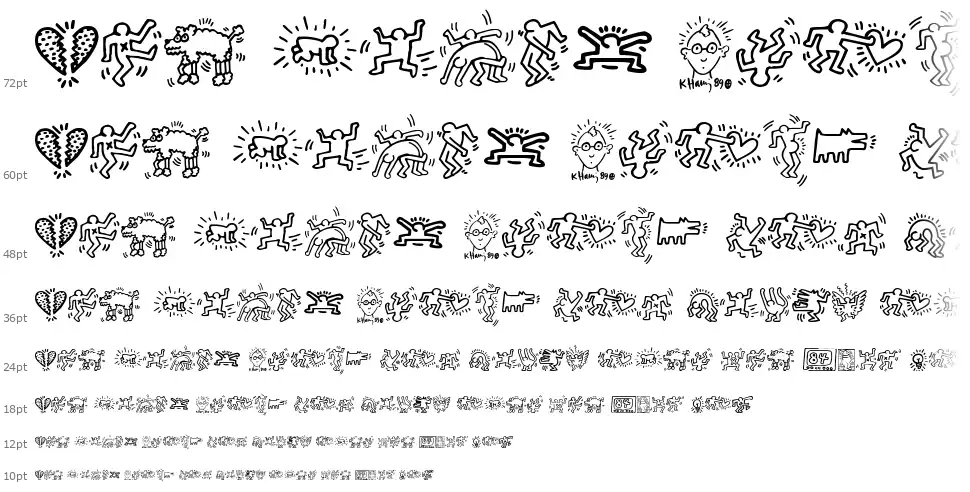 72pt
K Haring 89
60pt
K Haring 89
48pt
K Haring 89
36pt
24pt
84
18pt
84
12pt
10pt